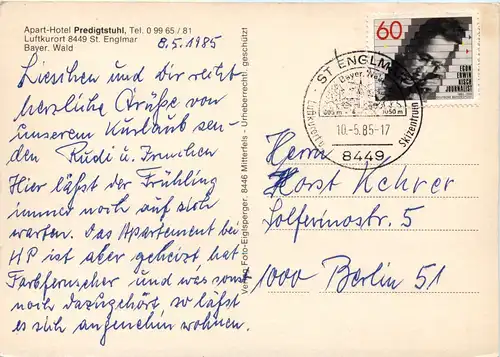 Apart-Hotel Predigtstuhl, Tel. 0 99 65 / 81
Luftkurort 8449 St. Englmar
Bayer. Wald
8.5.1985
Lieschen und dir recht
herzliche Grüße von
unserem Kurlaub sen-
den Rudi u. Frauchen
Hier läßt der Frühling
immer noch auf sich
warten. Das Apartement bei
HP ist aber geheizt hat
Farbfernseher und was sonst
noch dazugehört so läßt
es sich angenehm wohnen.
Verlag Foto-Eiglsperger, 8446 Mitterfels - Urheberrechtl. geschützt
60
EGON
ERWIN
KISCH
JOURNALIST
ST ENGLMAR
Bayer. Wald
805 m - 1050 m
Luftkurort
Skizentrum
10.-5.85-17
8449
Herrn
Horst Kehrer
Solferinostr. 5
1000 Berlin 51